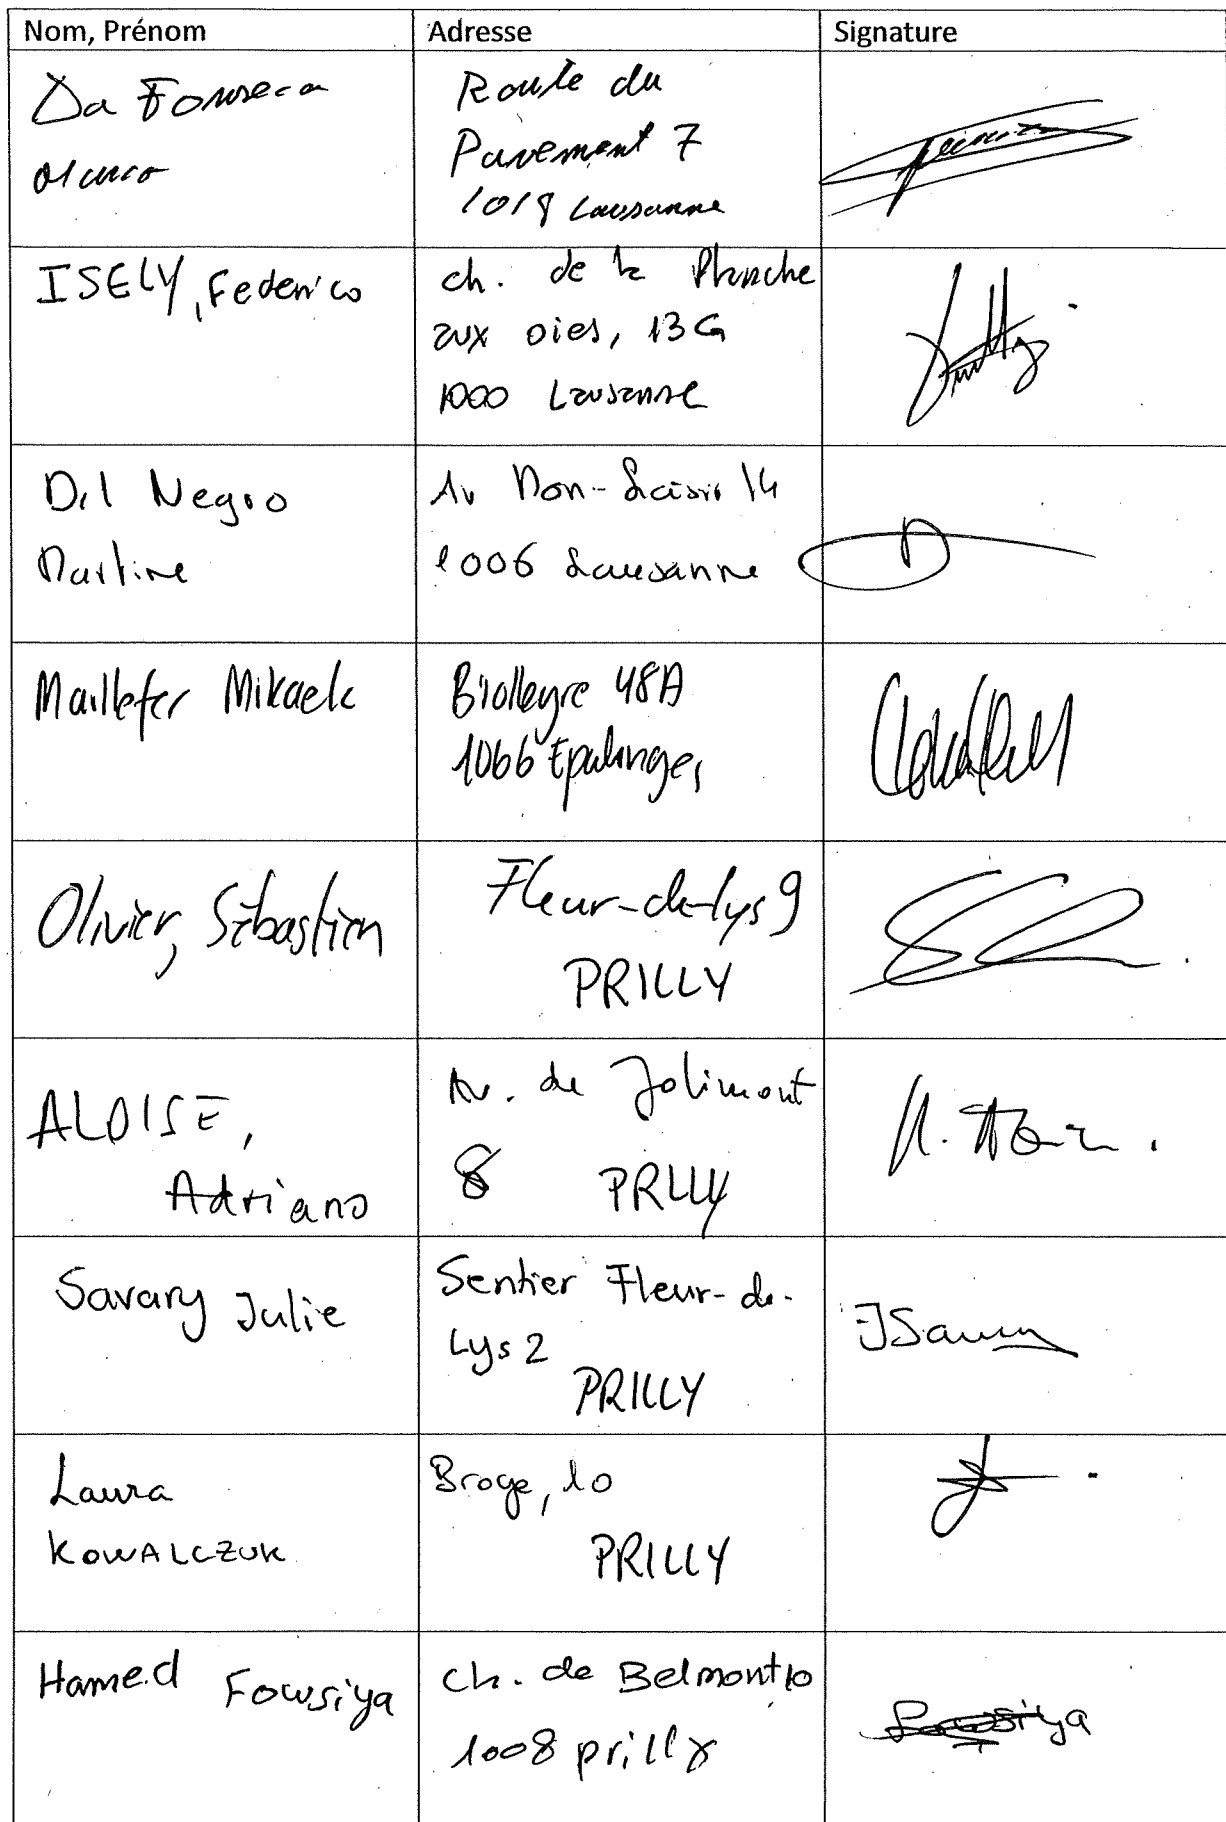 Nom, Prénom
Adresse
Signature
Da Fonseca
Marco
Route du
Pavement 7
1018 Lausanne
ISELY, Federico
ch. de la Planche
aux oies, 13G
1000 Lausanne
Del Negro
Martine
Av Mon-Loisir 14
1006 Lausanne
Maillefer Mikaele
Biolleyre 48A
1066 Epalinges
Olivier, Sébastien
Fleur-de-lys 9
PRILLY
ALOISE,
Adriano
Av. de Jolimont
8 PRLLY
Savary Julie
Sentier Fleur-de-
Lys 2
PRILLY
JSavary
Laura
KOWALCZUK
Broye, 10
PRILLY
Hamed Fowsiya
ch. de Belmont 10
1008 prilly
Fowsiya